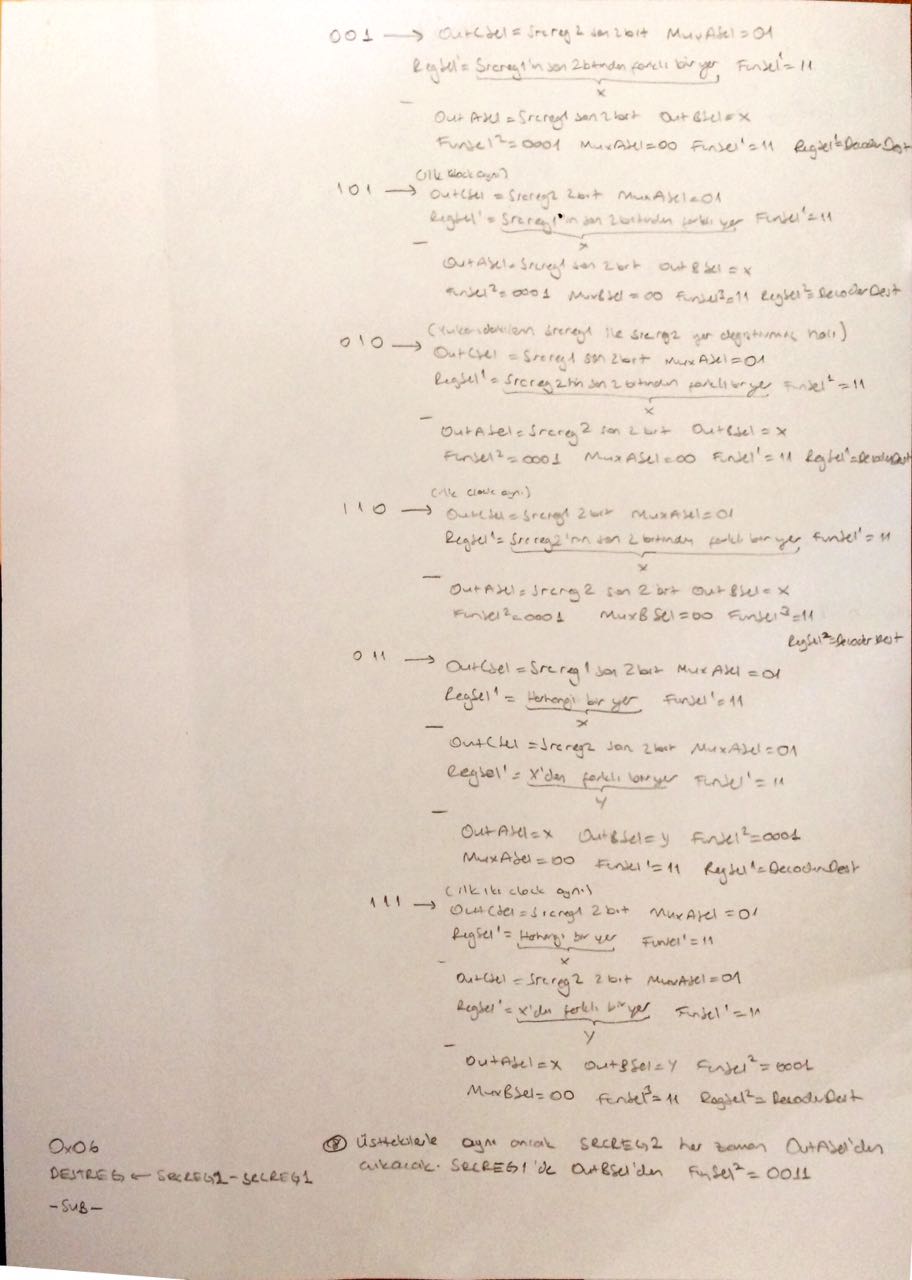 001 → OutCSel = Srcreg2 son 2 bit MuxASel = 01
RegSel¹ = Srcreg1'in son 2 bitinden farklı bir yer FunSel¹ = 11
x
- OutASel = Srcreg1 son 2 bit OutBSel = x
FunSel² = 0001 MuxASel = 00 FunSel¹ = 11 RegSel¹ = DecoderDest
(ilk clock aynı)
101 → OutCSel = Srcreg2 2 bit MuxASel = 01
RegSel¹ = Srcreg1'in son 2 bitinden farklı yer FunSel¹ = 11
x
- OutASel = Srcreg1 son 2 bit OutBSel = x
FunSel² = 0001 MuxBSel = 00 FunSel³ = 11 RegSel² = DecoderDest
(Yukarıdakilerin srcreg1 ile srcrg2 yer değiştirmiş hali)
010 → OutCSel = Srcreg1 son 2 bit MuxASel = 01
RegSel¹ = Srcreg2'nin son 2 bitinden farklı bir yer FunSel¹ = 11
x
- OutASel = Srcreg2 son 2 bit OutBSel = x
FunSel² = 0001 MuxASel = 00 FunSel¹ = 11 RegSel¹ = DecoderDest
(ilk clock aynı)
110 → OutCSel = Srcreg1 2 bit MuxASel = 01
RegSel¹ = Srcreg2'nin son 2 bitinden farklı bir yer, FunSel¹ = 11
x
- OutASel = Srcreg2 son 2 bit OutBSel = x
FunSel² = 0001 MuxBSel = 00 FunSel³ = 11
RegSel² = DecoderDest
011 → OutCSel = Srcreg1 son 2 bit MuxASel = 01
RegSel¹ = Herhangi bir yer FunSel¹ = 11
x
- OutCSel = Srcreg2 son 2 bit MuxASel = 01
RegSel¹ = X'den farklı bir yer FunSel¹ = 11
Y
- OutASel = x OutBSel = y FunSel² = 0001
MuxASel = 00 FunSel¹ = 11 RegSel¹ = DecoderDest
(ilk iki clock aynı)
111 → OutCSel = Srcreg1 2 bit MuxASel = 01
RegSel¹ = Herhangi bir yer FunSel¹ = 11
x
- OutCSel = Srcreg2 2 bit MuxASel = 01
RegSel¹ = X'den farklı bir yer FunSel¹ = 11
Y
- OutASel = X OutBSel = Y FunSel² = 0001
MuxBSel = 00 FunSel³ = 11 RegSel² = DecoderDest
0x06 Üsttekilerle aynı ancak SRCREG2 her zaman OutASel'den
DESTREG ← SRCREG2 - SRCREG1 çıkacak. SRCREG1'de OutBSel'den FunSel² = 0011
- SUB -